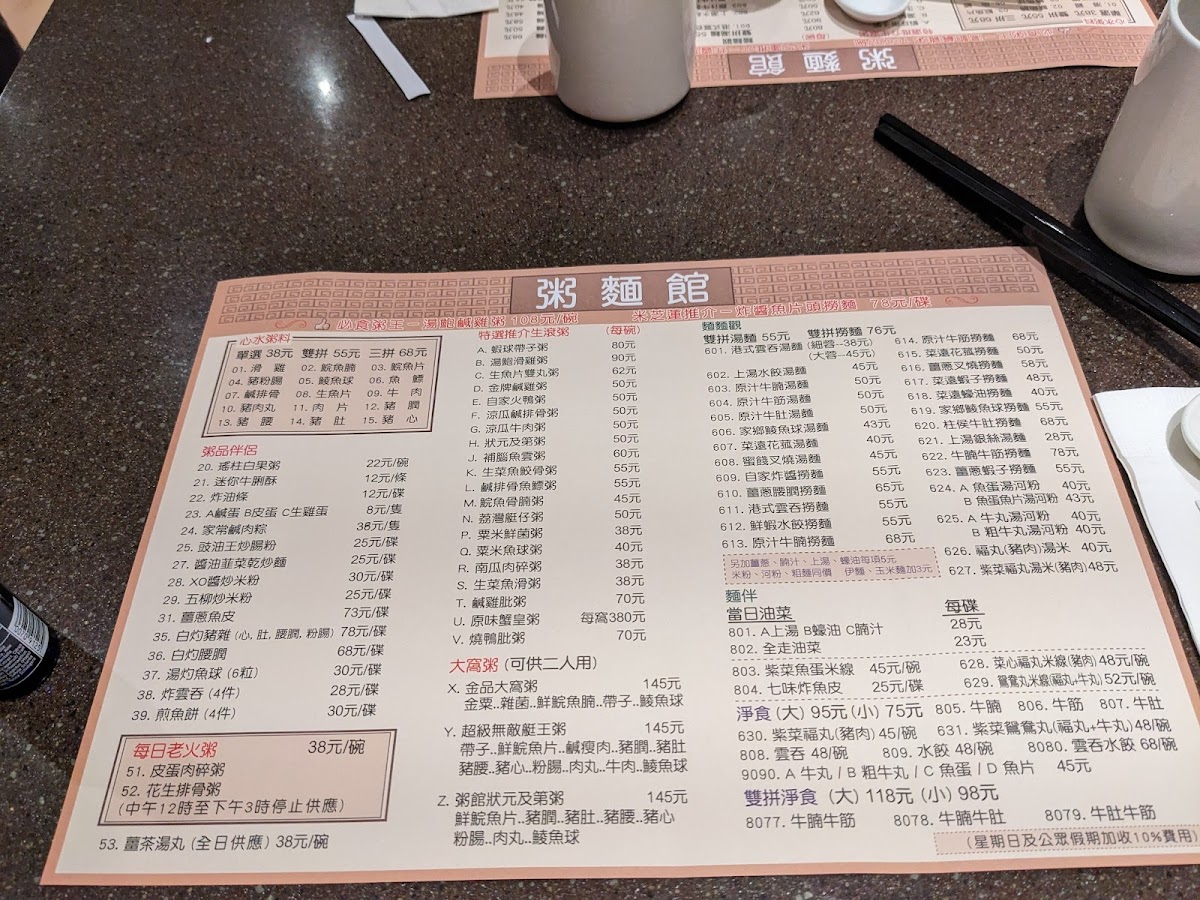 粥麵館
必食粥王－湯鮑鹹雞粥 108元/碗
米芝蓮推介－炸醬魚片頭撈麵 78元/碟
心水粥料
單選 38元 雙拼 55元 三拼 68元
01. 滑雞 02. 鯇魚腩 03. 鯇魚片
04. 豬粉腸 05. 鯪魚球 06. 魚鰾
07. 鹹排骨 08. 生魚片 09. 牛肉
10. 豬肉丸 11. 肉片 12. 豬膶
13. 豬腰 14. 豬肚 15. 豬心
粥品伴侶
20. 瑤柱白果粥 22元/碗
21. 迷你牛脷酥 12元/條
22. 炸油條 12元/碟
23. A鹹蛋 B皮蛋 C生雞蛋 8元/隻
24. 家常鹹肉粽 38元/隻
25. 豉油王炒腸粉 25元/碟
27. 醬油韮菜乾炒麵 25元/碟
28. XO醬炒米粉 30元/碟
29. 五柳炒米粉 25元/碟
31. 薑蔥魚皮 73元/碟
35. 白灼豬雜 (心, 肚, 腰膶, 粉腸) 78元/碟
36. 白灼腰膶 68元/碟
37. 湯灼魚球 (6粒) 30元/碟
38. 炸雲吞 (4件) 28元/碟
39. 煎魚餅 (4件) 30元/碟
每日老火粥 38元/碗
51. 皮蛋肉碎粥
52. 花生排骨粥
(中午12時至下午3時停止供應)
53. 薑茶湯丸 (全日供應) 38元/碗
特選推介生滾粥 (每碗)
A. 蝦球帶子粥 80元
B. 湯鮑滑雞粥 90元
C. 生魚片雙丸粥 62元
D. 金牌鹹雞粥 50元
E. 自家火鴨粥 50元
F. 涼瓜鹹排骨粥 50元
G. 涼瓜牛肉粥 50元
H. 狀元及第粥 50元
J. 補腦魚雲粥 60元
K. 生菜魚餃骨粥 55元
L. 鹹排骨魚鰾粥 55元
M. 鯇魚骨腩粥 45元
N. 荔灣艇仔粥 50元
P. 粟米鮮菌粥 38元
Q. 粟米魚球粥 40元
R. 南瓜肉碎粥 38元
S. 生菜魚滑粥 38元
T. 鹹雞肶粥 70元
U. 原味蟹皇粥 每窩380元
V. 燒鴨肶粥 70元
大窩粥 (可供二人用)
X. 金品大窩粥 145元
金粟..雜菌..鮮鯇魚腩..帶子..鯪魚球
Y. 超級無敵艇王粥 145元
帶子..鮮鯇魚片..鹹瘦肉..豬膶..豬肚
豬腰..豬心..粉腸..肉丸..牛肉..鯪魚球
Z. 粥館狀元及第粥 145元
鮮鯇魚片..豬膶..豬肚..豬腰..豬心
粉腸..肉丸..鯪魚球
麵麵觀
雙拼湯麵 55元 雙拼撈麵 76元
601. 港式雲吞湯麵 (細蓉--38元)
(大蓉--45元)
602. 上湯水餃湯麵 45元
603. 原汁牛腩湯麵 50元
604. 原汁牛筋湯麵 50元
605. 原汁牛肚湯麵 50元
606. 家鄉鯪魚球湯麵 43元
607. 菜遠花菰湯麵 40元
608. 蜜餞叉燒湯麵 45元
609. 自家炸醬撈麵 55元
610. 薑蔥腰膶撈麵 65元
611. 港式雲吞撈麵 55元
612. 鮮蝦水餃撈麵 55元
613. 原汁牛腩撈麵 68元
另加薑蔥、腩汁、上湯、蠔油每項5元
米粉、河粉、粗麵同價 伊麵、玉米麵加3元
麵伴
當日油菜 每碟
801. A上湯 B蠔油 C腩汁 28元
802. 全走油菜 23元
803. 紫菜魚蛋米線 45元/碗
804. 七味炸魚皮 25元/碟
614. 原汁牛筋撈麵 68元
615. 菜遠花菰撈麵 50元
616. 薑蔥叉燒撈麵 58元
617. 菜遠蝦子撈麵 48元
618. 菜遠蠔油撈麵 40元
619. 家鄉鯪魚球撈麵 55元
620. 柱侯牛肚撈麵 68元
621. 上湯銀絲湯麵 28元
622. 牛腩牛筋撈麵 78元
623. 薑蔥蝦子撈麵 55元
624. A 魚蛋湯河粉 40元
B 魚蛋魚片湯河粉 43元
625. A 牛丸湯河粉 40元
B 粗牛丸湯河粉 40元
626. 福丸(豬肉)湯米 40元
627. 紫菜福丸湯米(豬肉)48元
628. 菜心福丸米線(豬肉)48元/碗
629. 鴛鴦丸米線(福丸+牛丸)52元/碗
淨食 (大) 95元 (小) 75元 805. 牛腩 806. 牛筋 807. 牛肚
630. 紫菜福丸(豬肉) 45元/碗 631. 紫菜鴛鴦丸(福丸+牛丸)48/碗
808. 雲吞 48/碗 809. 水餃 48/碗 8080. 雲吞水餃 68/碗
9090. A 牛丸 / B 粗牛丸 / C 魚蛋 / D 魚片 45元
雙拼淨食 (大) 118元 (小) 98元
8077. 牛腩牛筋 8078. 牛腩牛肚 8079. 牛肚牛筋
(星期日及公眾假期加收10%費用)
粥麵館